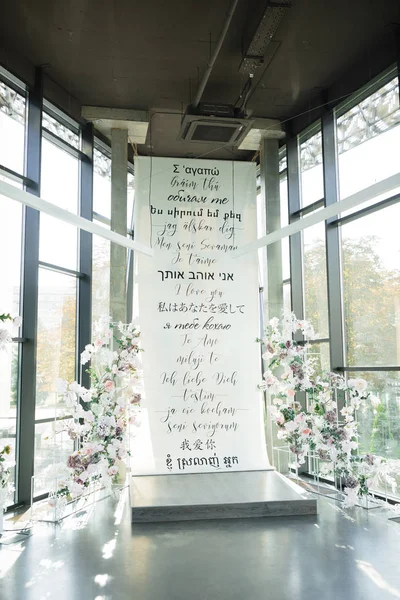 Σ 'αγαπώ
Gráim thú
обичам те
Ես սիրում եմ քեզ
jag älskar dig
Men seni Sevaman
Je t'aime
אני אוהב אותך
I love you
私はあなたを愛して
я тебе кохаю
Te Amo
miluji te
Ich liebe Dich
t'estim
ja cie kocham
seni seviyorum
我爱你
ខ្ញុំ ស្រលាញ់ អ្នក